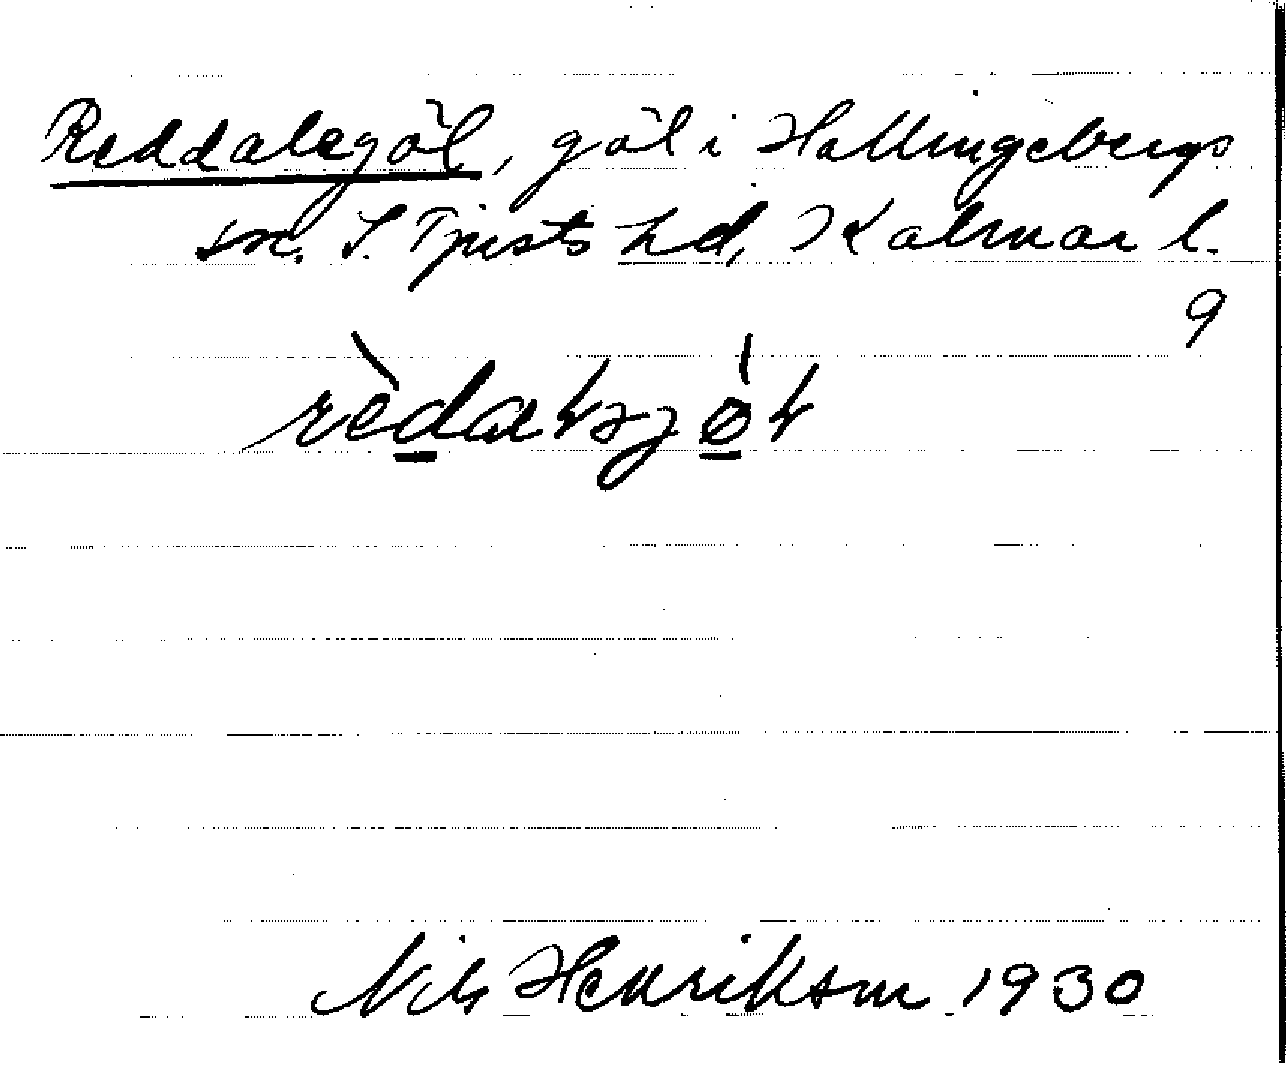 Reddalegöl, göl i Hallingebergs
sn. S. Tjusts hd, Kalmar l.
9
Nils Henrikson 1930